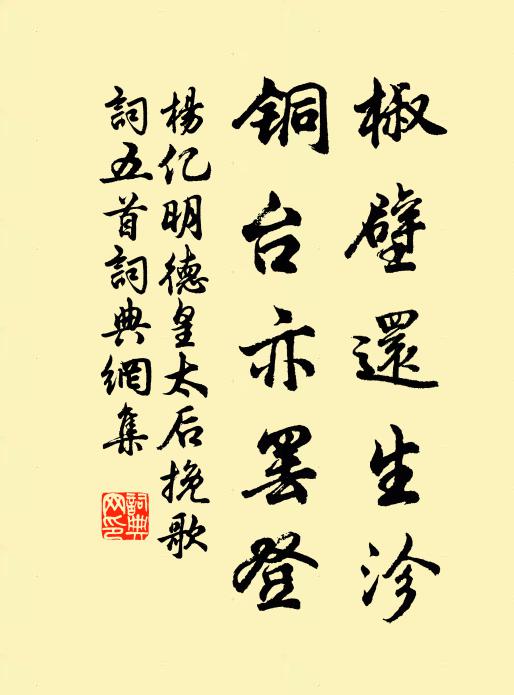 椒壁還生沴
铜台亦罢登
杨亿明德皇太后挽歌
詞五首詞典網集
詞典網印